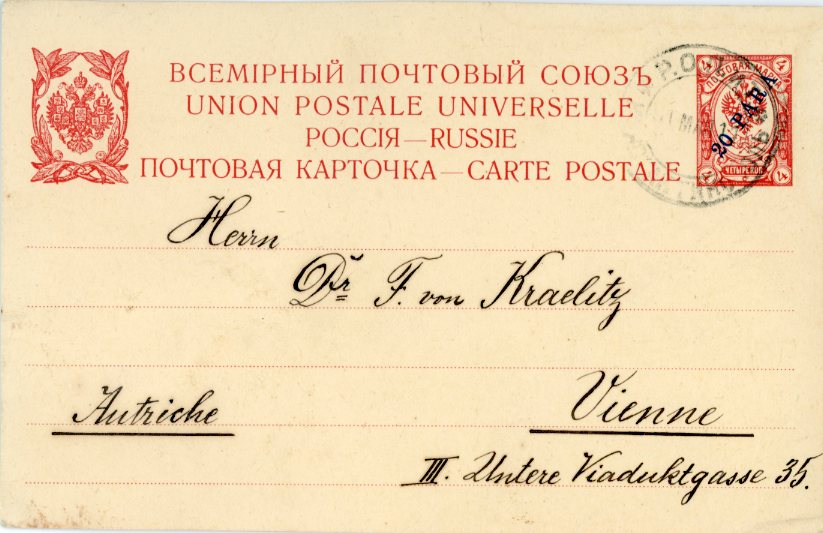 ВСЕМІРНЫЙ ПОЧТОВЫЙ СОЮЗЪ
UNION POSTALE UNIVERSELLE
РОССІЯ—RUSSIE
ПОЧТОВАЯ КАРТОЧКА—CARTE POSTALE
4 ПОЧТОВАЯ МАРКА 4
20 PARA
4 ЧЕТЫРЕ КОП. 4
Herrn
Dr F. von Kraelitz
Autriche
Vienne
III. Untere Viaduktgasse 35.